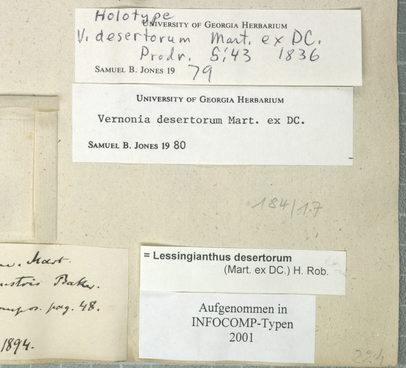 Holotype
UNIVERSITY OF GEORGIA HERBARIUM
V. desertorum Mart. ex DC.
Prodr. 5:43 1836
SAMUEL B. JONES 19 79
UNIVERSITY OF GEORGIA HERBARIUM
Vernonia desertorum Mart. ex DC.
SAMUEL B. JONES 19 80
184/17
Mart.
Baker.
pag. 48.
1894.
= Lessingianthus desertorum
(Mart. ex DC.) H. Rob.
Aufgenommen in
INFOCOMP-Typen
2001